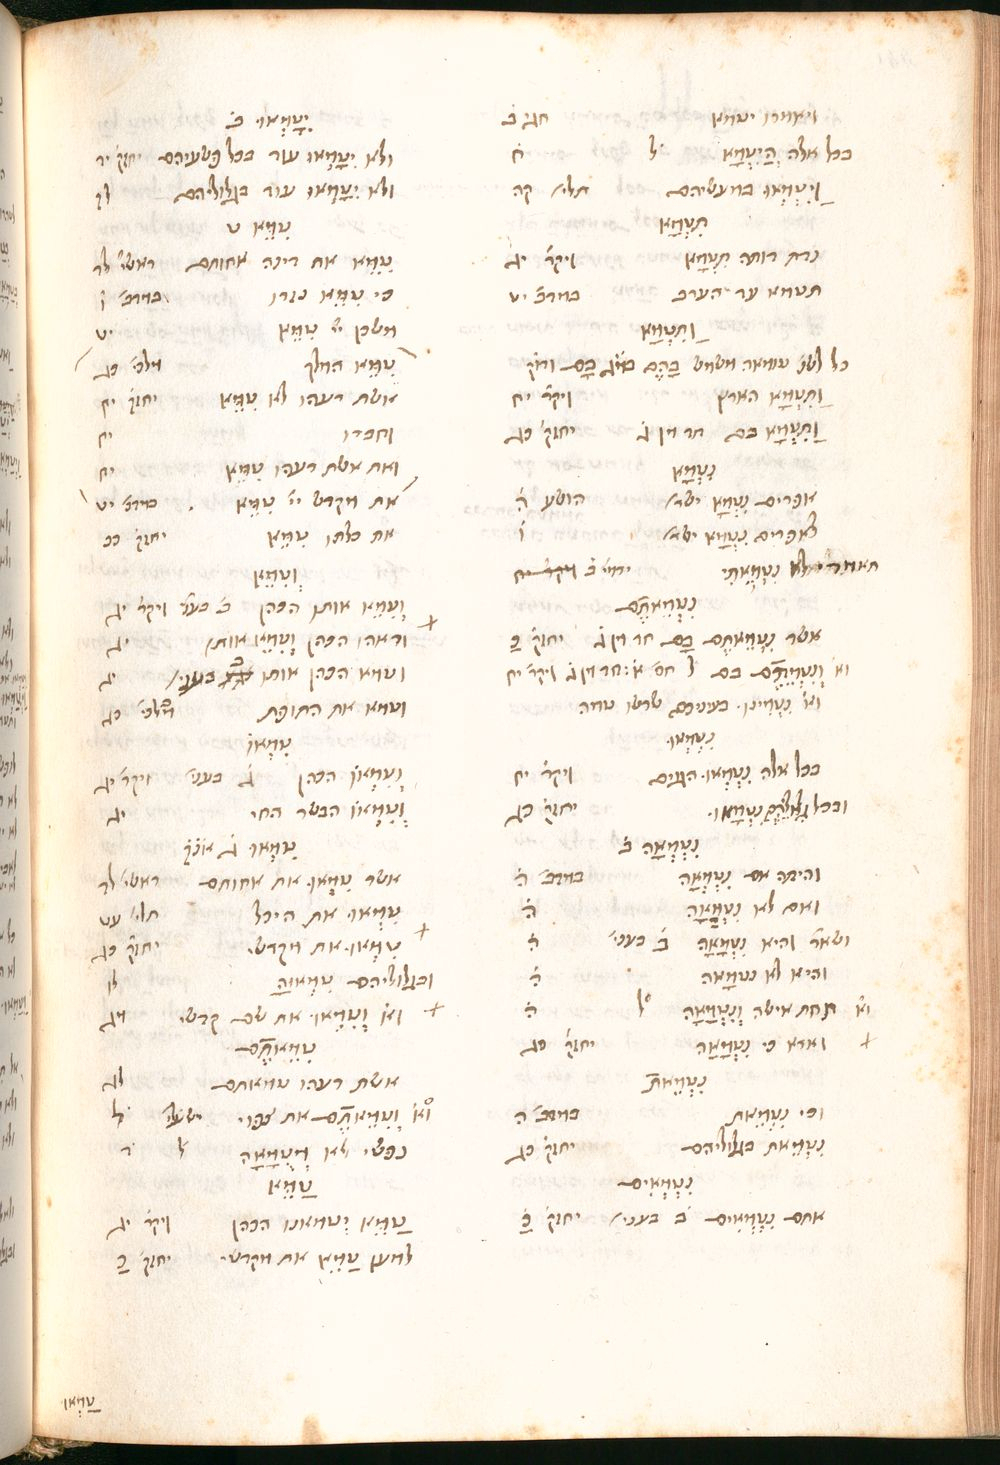 ויאמרו יטמא חגי ב
בכל אלה הֲיִטְמָא ל ח
וַיִּטְמְאוּ במעשיהם תלי קה
תִטְמָא
נדת דותה תִטְמָא ויקר יב
תטמא עד הערב במדב יט
וַתִּטְמָא
וַתִּטְמָא הארץ ויקר יח
וַתִּטְמָא בם חד מן ג יחזק כג
נִטְמָא
אפרים נִטְמָא ישר הושע ה
לאפרים נִטְמָא ישר ו
נִטְמֵאתִי ירמ ב
נִטְמֵאתֶם
אשר נִטְמֵאתֶם בָם חד מן ג יחזק כ
וא וְנִטְמֵתֶם בם ל חס א חד מן ג ויקר יח
וא נִטְמִינוּ בעיניכם
נִטְמְאוּ
בכל אלה נִטְמְאוּ הגוים ויקר יח
ובכל גלוליהם נִטְמָאוּ יחזק כג
נִטְמְאָה ב
והיתה אם נִטְמְאָה במדב ה
ואם לא נִטְמְאָה ה
ושאר והיא נִטְמָאָה ב בעני ה
והיא לא נטמאה ה
וא תחת אישה וְנִטְמָאָה ל ה
וארא כי נִטְמָאָה יחזק כג
נִטְמֵאת
וכי נִטְמֵאת במדב ה
נִטְמֵאת בגלוליהם יחזק כג
נִטְמְאִים
אתם נִטְמְאִים ב בעני יחזק כ
יִטַּמְּאוּ ב
ולא יִטַּמְּאוּ עוד בכל פשעיהם יחזק יד
ולא יִטַּמְּאוּ עוד בגלוליהם לז
טִמֵּא ט
טִמֵּא את דינה אחותם ראשי לד
כי טִמֵּא נזרו במדב ו
משכן יי טִמֵּא יט
טִמֵּא המלך מלכ כג
אשת רעהו לא טִמֵּא יחזק יח
וחברו יח
ואת אשת רעהו טִמֵּא יח
את מקדש יי טִמֵּא במדב יט
את כלתו טִמֵּא יחזק כב
וְטִמֵּא
וְטִמֵּא אותו הכהן ב בעני ויקר יג
וראהו הכהן וְטִמֵּא אותו יג
וטמא הכהן אותו בעני יג
וטמא את התופת מלכ כג
טִמְּאוֹ
וְטִמְּאוֹ הכהן ג בעני ויקר יג
וְטִמְּאוֹ הבשר החי יג
טִמְּאוּ ג
אשר טִמְּאוּ את אחותם ראשי לד
טִמְּאוּ את היכל תלי עט
טִמְּאוּ את מקדשי יחזק כג
ובגלוליהם טִמְּאוּהָ לו
וא וְטִמְּאוּ את שם קדשי מג
טִמֵּאתֶם
אשת רעהו טמאתם לג
וא וְטִמֵּאתֶם את צפוי ישעי ל
נפשי לא מְטֻמָּאָה ל ד
טַמֵּא
טַמֵּא יְטמאנו הכהן ויקר יג
למען טַמֵּא את מקדשי יחזק כ
טַמְּאוּ